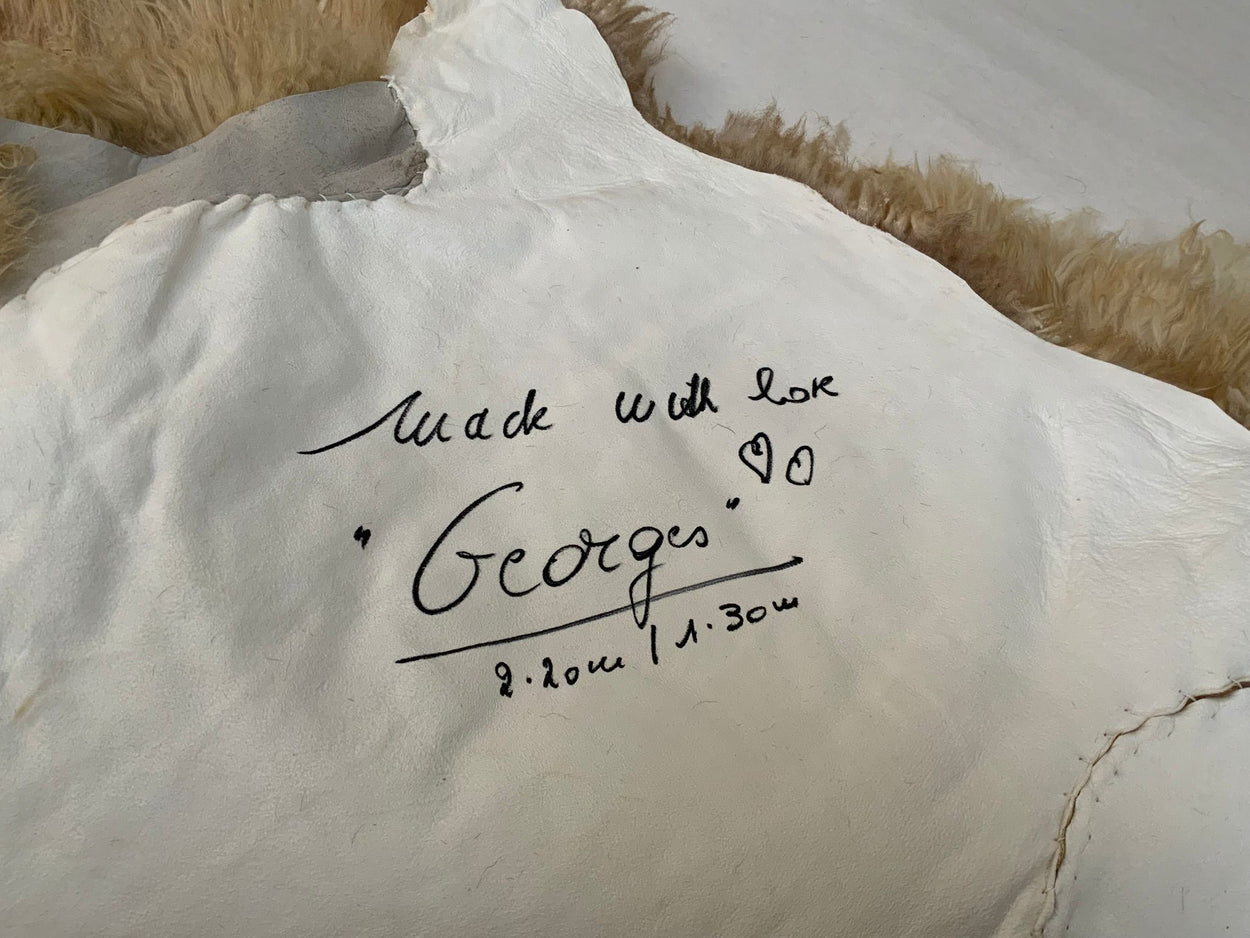 Made with love
"Georges"
2.20m / 1.30m